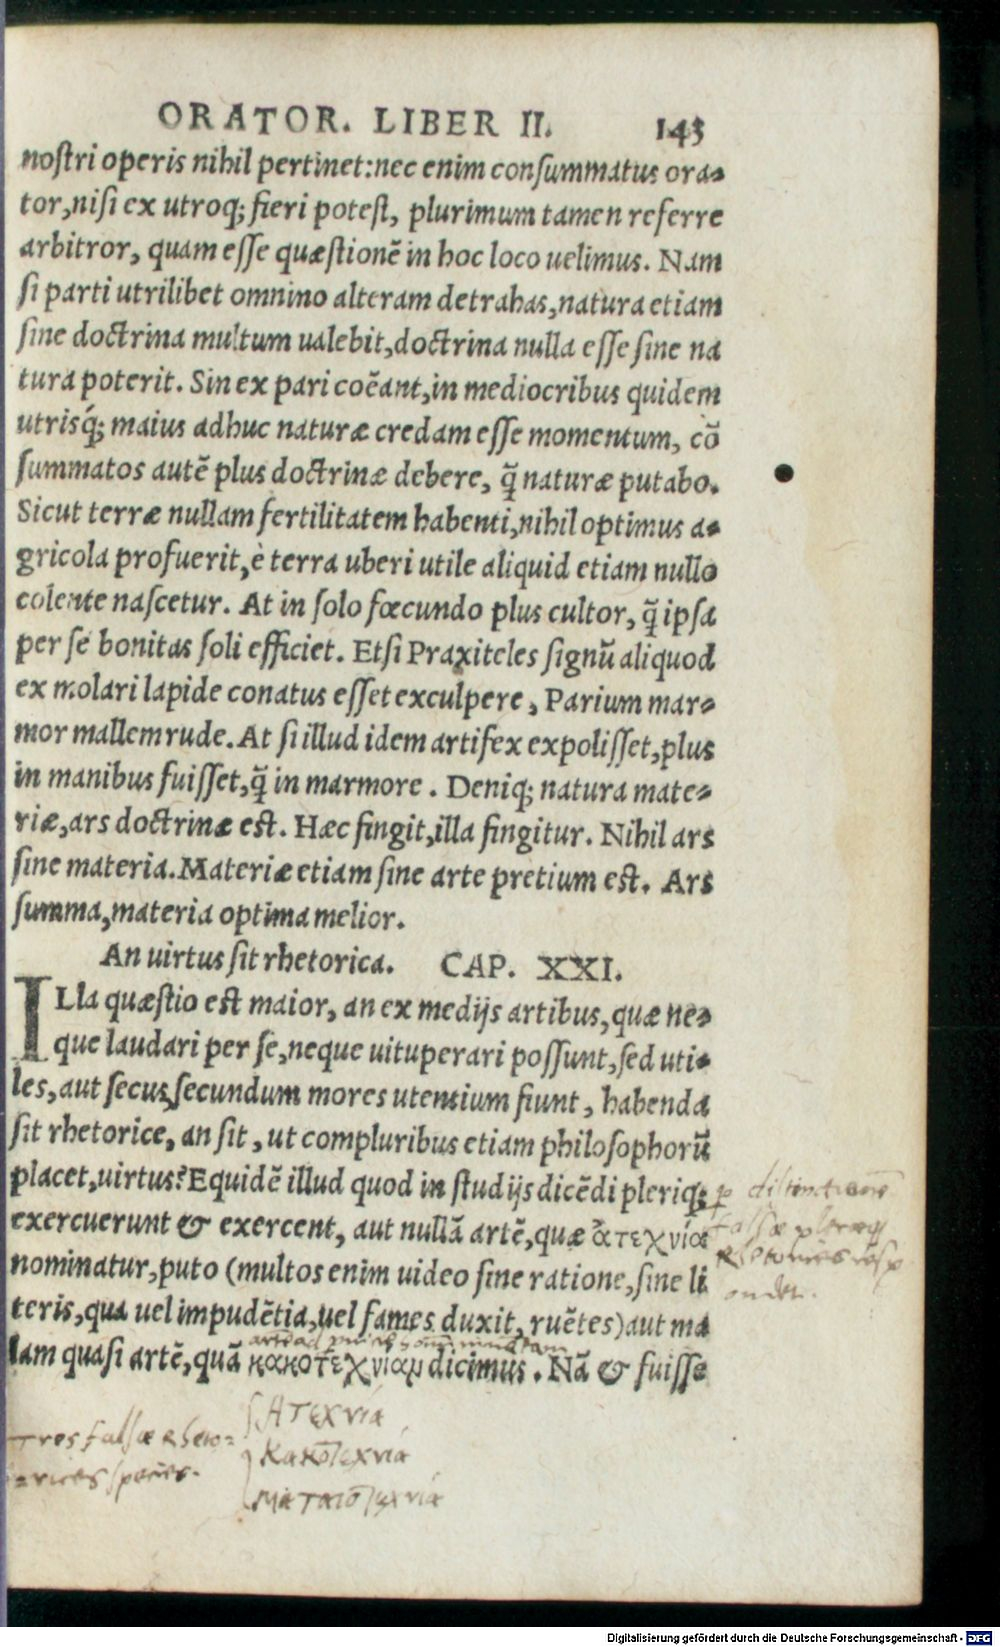 ORATOR. LIBER II. 143
nostri operis nihil pertinet: nec enim consummatus ora-
tor, nisi ex utroq; fieri potest, plurimum tamen referre
arbitror, quam esse quæstionē in hoc loco uelimus. Nam
si parti utrilibet omnino alteram detrahas, natura etiam
sine doctrina multum ualebit, doctrina nulla esse sine na
tura poterit. Sin ex pari coēant, in mediocribus quidem
utrisq́; maius adhuc naturæ credam esse momentum, cō
summatos autē plus doctrinæ debere, q̃ naturæ putabo.
Sicut terræ nullam fertilitatem habenti, nihil optimus a-
gricola profuerit, è terra uberi utile aliquid etiam nullo
colente nascetur. At in solo fœcundo plus cultor, q̃ ipsa
per se bonitas soli efficiet. Etsi Praxiteles signū aliquod
ex molari lapide conatus esset exculpere, Parium mar-
mor mallem rude. At si illud idem artifex expolisset, plus
in manibus fuisset, q̃ in marmore. Deniq; natura mate-
riæ, ars doctrinæ est. Hæc fingit, illa fingitur. Nihil ars
sine materia. Materiæ etiam sine arte pretium est. Ars
summa, materia optima melior.
An uirtus sit rhetorica. CAP. XXI.
ILla quæstio est maior, an ex medijs artibus, quæ ne-
que laudari per se, neque uituperari possunt, sed uti-
les, aut secus secundum mores utentium fiunt, habenda
sit rhetorice, an sit, ut compluribus etiam philosophorū
placet, uirtus? Equidē illud quod in studijs dicēdi pleriq;
exercuerunt & exercent, aut nullā artē, quæ ἀτεχνία
nominatur, puto (multos enim uideo sine ratione, sine li
teris, qua uel impudētia, uel fames duxit, ruētes) aut ma
lam quasi artē, quā κακοτεχνίαν dicimus. Nā & fuisse
p distinctionē
falsæ pleræq
Rhetorices resp
ondet.
Tres falsæ Rheto-
rices species.
Ατεχνία
Κακοτεχνία
Ματαιοτεχνία
Digitalisierung gefördert durch die Deutsche Forschungsgemeinschaft - DFG